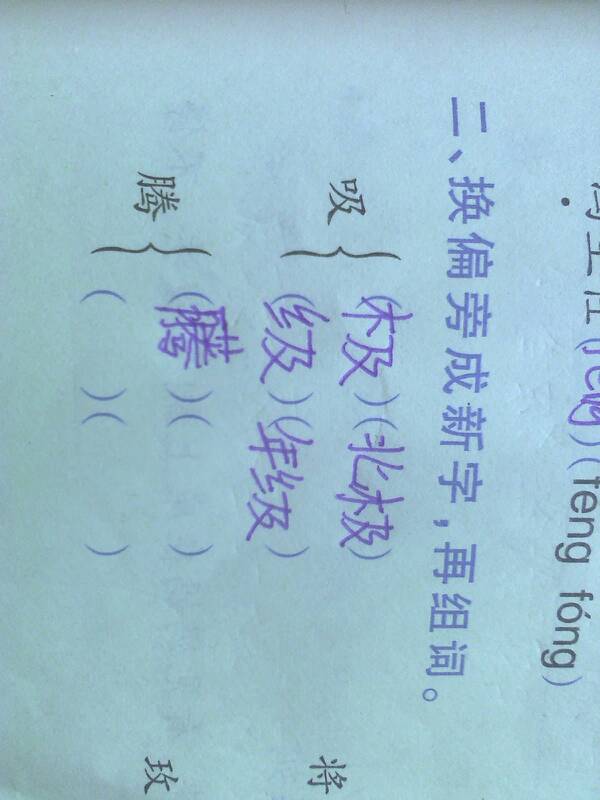 fóng)
二、换偏旁成新字，再组词。
吸 (极)(北极) 将
(级)(年级)
腾 ( )( ) 玫
( )( )